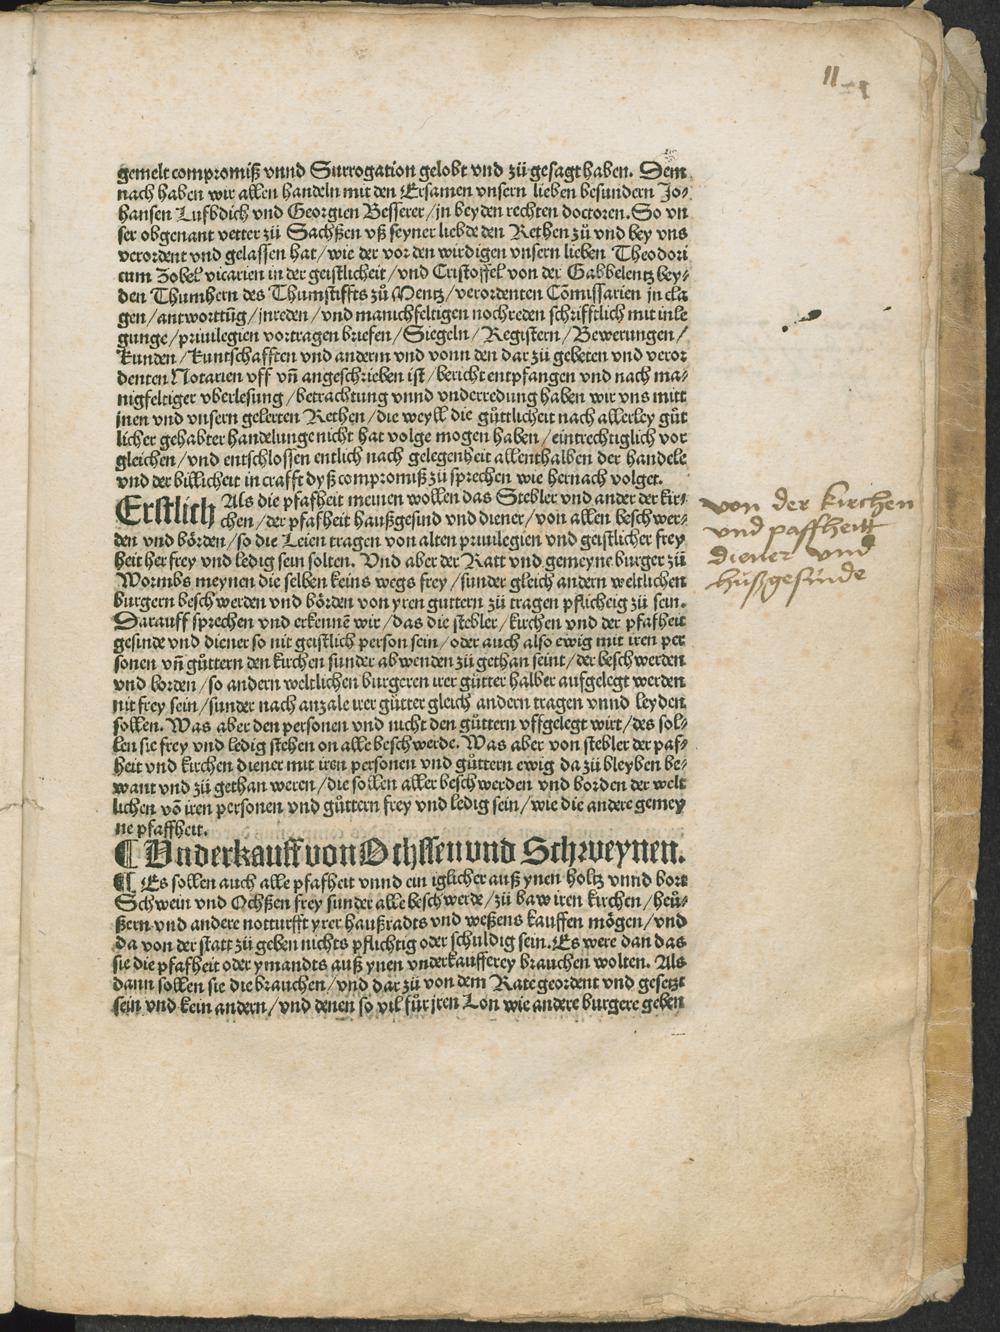 11
gemelt compromiß vnnd Surrogation gelobt vnd zü gesagt haben. Dem
nach haben wir allen handeln mit den Ersamen vnsern lieben besundern Jo⸗
hansen Lufbdich vnd Georgien Besserer/jn beyden rechten doctoren. So vn
ser obgenant vetter zü Sachßen vß seyner liebde den Rethen zü vnd bey vns
verordent vnd gelassen hat/wie der vor den wirdigen vnsern lieben Theodori
cum Zobel vicarien in der geistlicheit/vnd Cristoffel von der Gabbelentz bey⸗
den Thumhern des Thumstiffts zů Mentz/verordenten Cōmissarien jn cla
gen/antworttūg/jnreden/vnd manichfeltigen nochreden schrifftlich mit inle
gunge/priuilegien vortragen briefen/Siegeln/Registern/Bewerungen/
kunden/kuntschafften vnd anderm vnd vonn den dar zü gebeten vnd veror
denten Notarien vff vn̄ angeschrieben ist/bericht entpfangen vnd nach ma⸗
nigfeltiger vberlesung/betrachtung vnnd vnderredung haben wir vns mitt
jnen vnd vnsern gelerten Rethen/die weyll die gůttlicheit nach allerley gůt
licher gehabter handelunge nicht hat volge mogen haben/eintrechtiglich vor
gleichen/vnd entschlossen entlich nach gelegenheit allenthalben der handele
vnd der billicheit in crafft dyß compromiß zü sprechen wie hernach volget.
Erstlich Als die pfafheit meinen wollen das Stebler vnd ander der kir⸗
chen/der pfafheit haußgesind vnd diener/von allen beschwer⸗
den vnd börden/so die Leien tragen von alten priuilegien vnd geistlicher frey
heit her frey vnd ledig sein solten. Vnd aber der Ratt vnd gemeyne burger zü
Wormbs meynen die selben keins wegs frey/sunder gleich andern weltlichen
burgern beschwerden vnd börden von yren guttern zü tragen pflicheig zü sein.
Darauff sprechen vnd erkennē wir/das die stebler/kirchen vnd der pfafheit
gesinde vnd diener so nit geistlich person sein/oder auch also ewig mit iren per
sonen vn̄ gůttern den kirchen sunder abwenden zü gethan seint/der beschwerden
vnd borden/so andern weltlichen burgeren irer gütter halber aufgelegt werden
nit frey sein/sunder nach anzale irer gütter gleich andern tragen vnnd leyden
sollen. Was aber den personen vnd nicht den güttern vffgelegt wirt/des sol⸗
len sie frey vnd ledig stehen on alle beschwerde. Was aber von stebler der paf⸗
heit vnd kirchen diener mit iren personen vnd güttern ewig da zü bleyben be⸗
want vnd zü gethan weren/die sollen aller beschwerden vnd borden der welt
lichen vō iren personen vnd güttern frey vnd ledig sein/wie die andere gemey
ne pfaffheit.
von der kirchen
vnd paffheitt
diener vnd
hußgesinde
¶ Vnderkauff von Ochssen vnnd Schweynen.
¶ Es sollen auch alle pfafheit vnnd ein iglicher auß ynen holtz vnnd bort
Schwein vnd Ochßen frey sunder alle beschwerde/zü baw iren kirchen/heü⸗
ßern vnd andere notturfft yrer haußradts vnd weßens kauffen mögen/vnd
da von der statt zü geben nichts pflichtig oder schuldig sein. Es were dan das
sie die pfafheit oder ymandts auß ynen vnderkaufferey brauchen wolten. Als
dann sollen sie die brauchen/vnd dar zü von dem Rate geordent vnd gesetzt
sein vnd kein andern/vnd denen so vil für jren Lon wie andere burgere geben